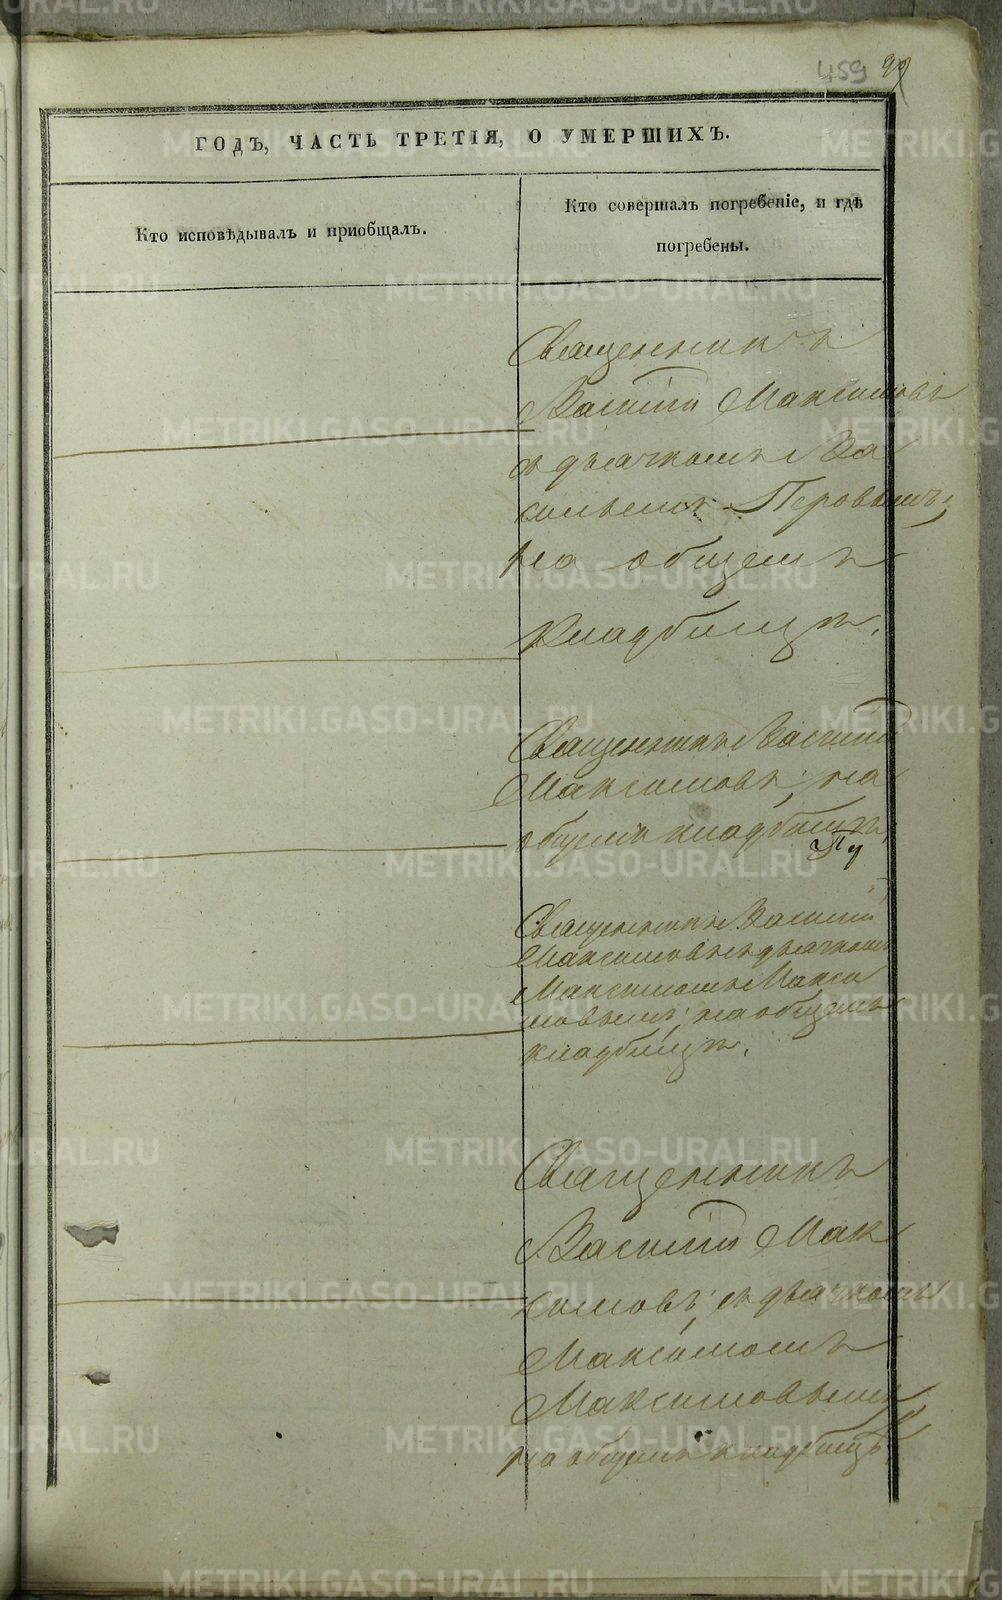 459 99
ГОДЪ, ЧАСТЬ ТРЕТІЯ, О УМЕРШИХЪ.
Кто исповѣдывалъ и пріобщалъ.
Кто совершалъ погребеніе, и гдѣ
погребены.
Священникъ
Василій Максимовъ
съ дьячкомъ Ва
сильемъ Перовымъ,
на общемъ
кладбищѣ.
Священникъ Василій
Максимовъ; на
общемъ кладбищѣ.
Священникъ Василій
Максимовъ съ дьячкомъ
Максимомъ Макси
мовымъ; на общемъ
кладбищѣ.
Священникъ
Василій Мак
симовъ; съ дьячкомъ
Максимомъ
Максимовымъ
на общемъ кладбищѣ
METRIKI.GASO-URAL.RU